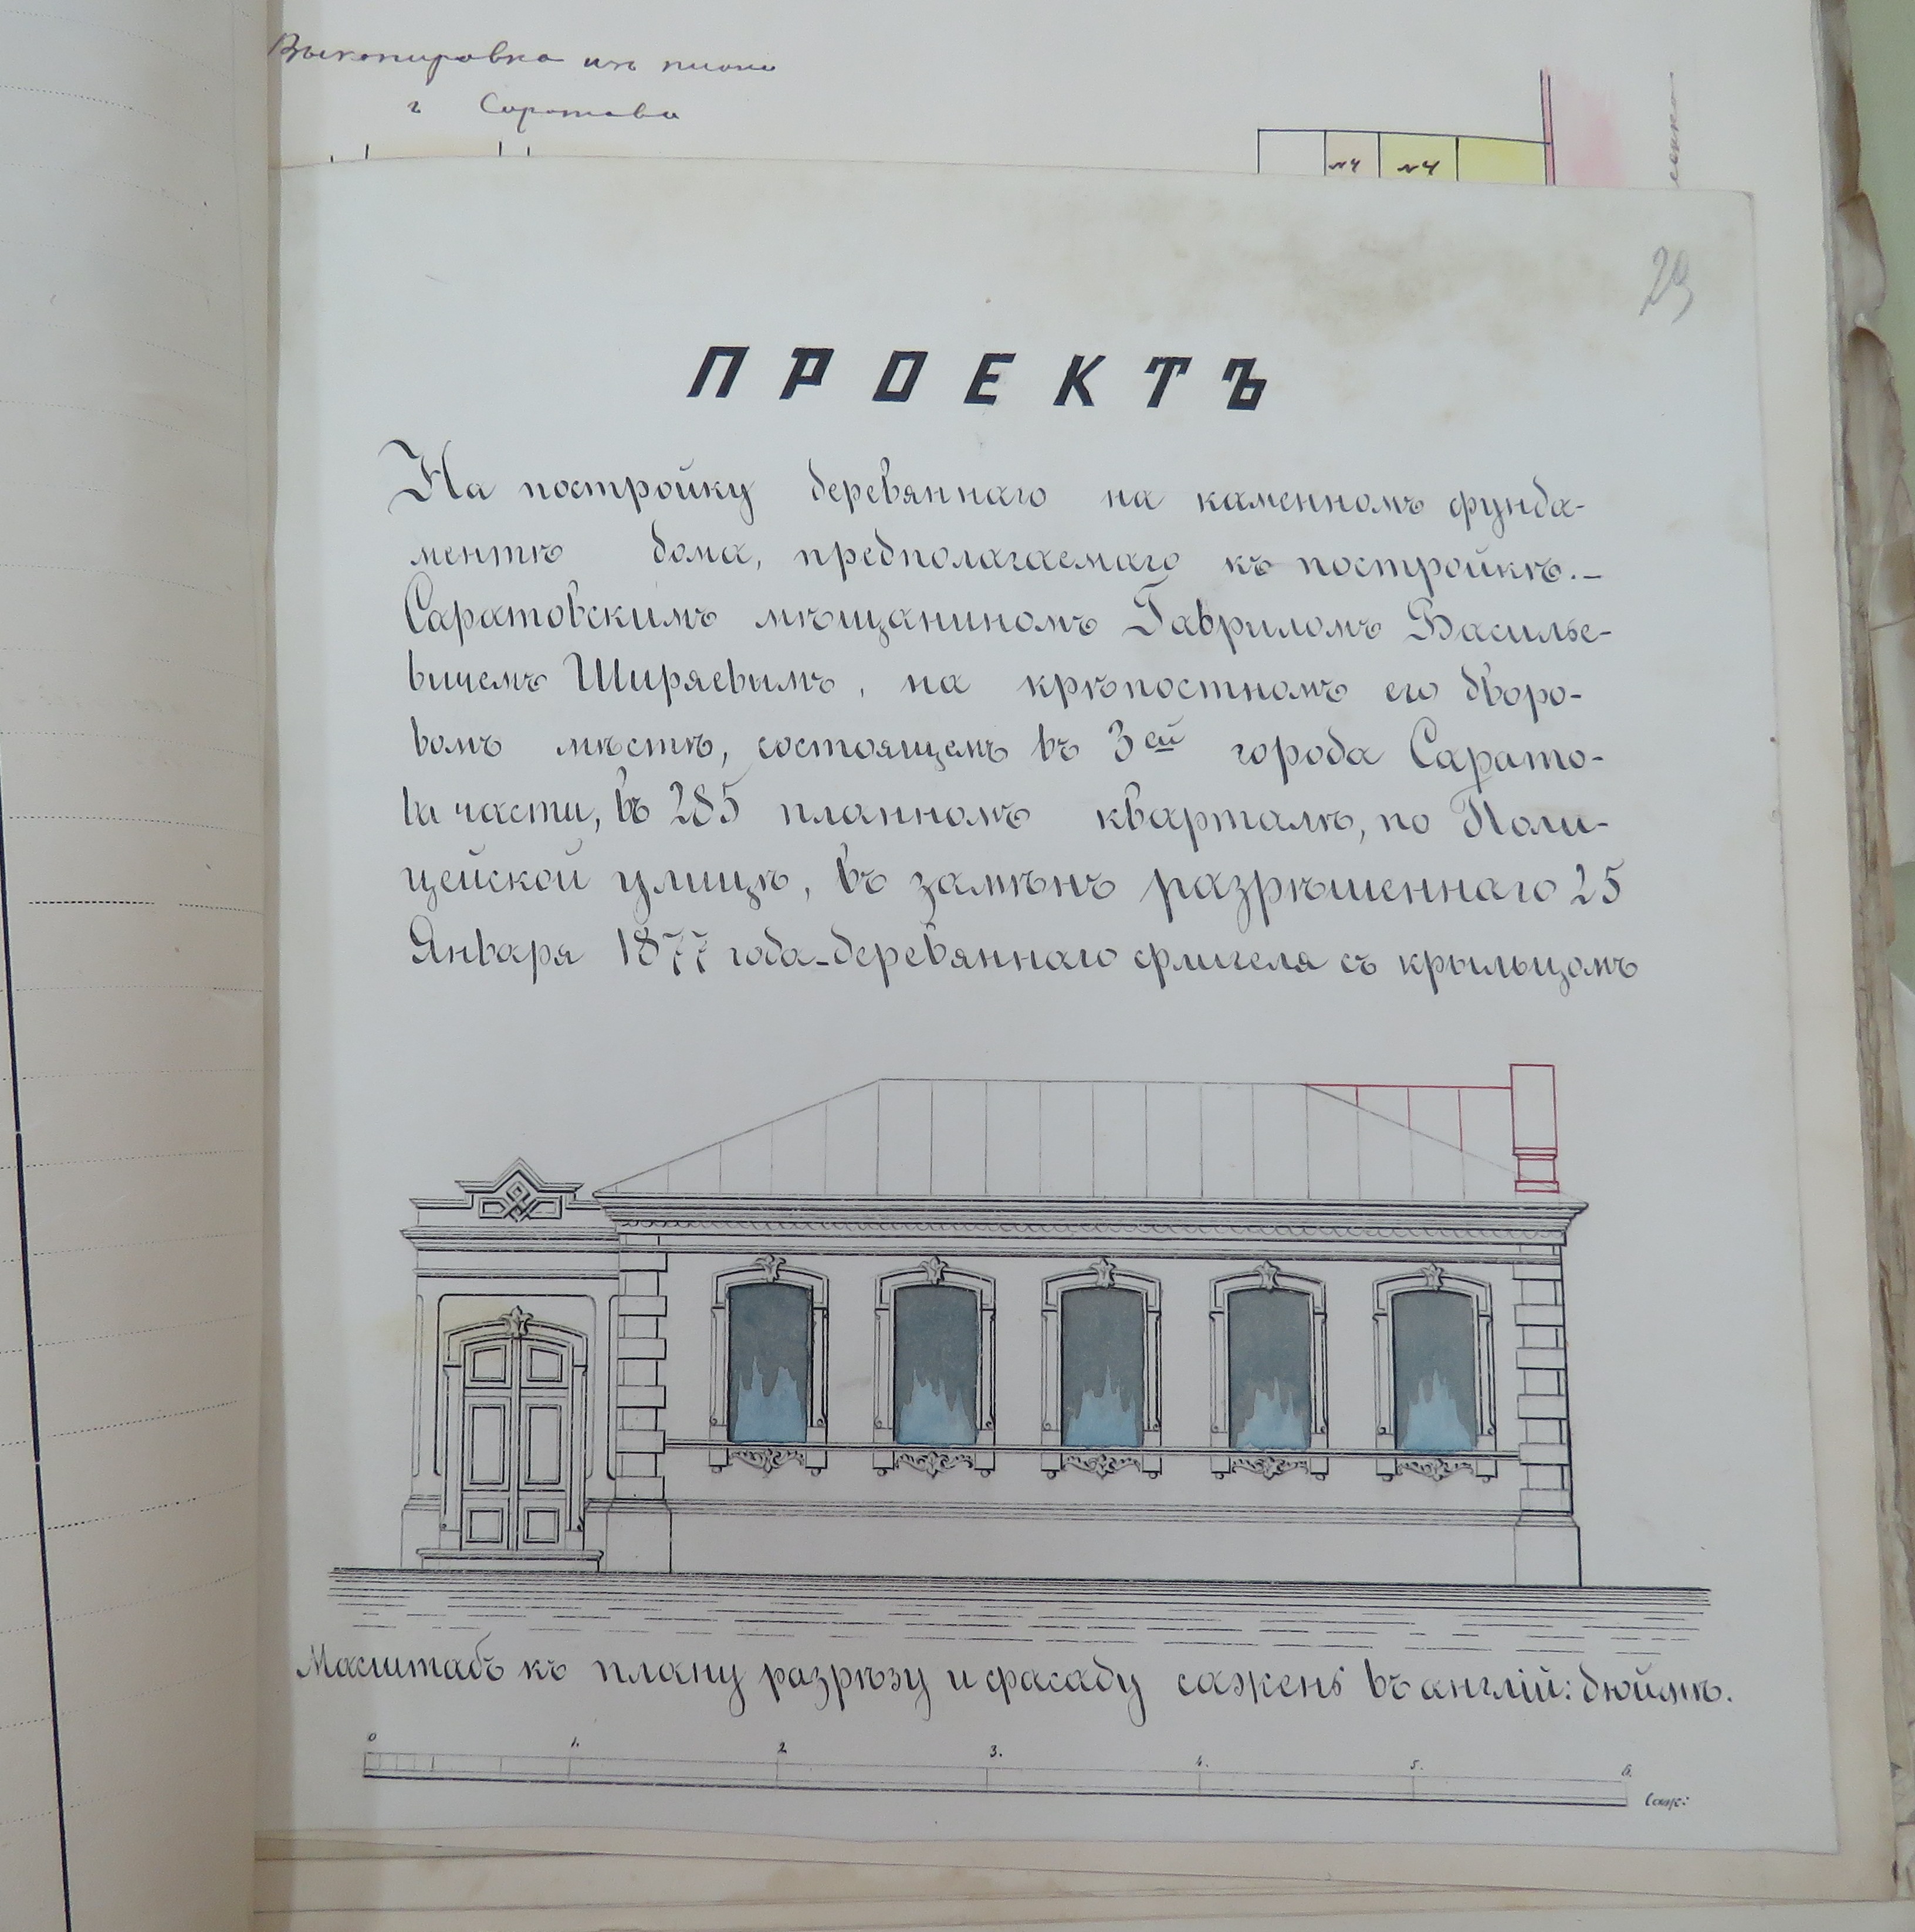 Выкопировка изъ плана
г Саратова
№4 №4
29
ПРОЕКТЪ
На постройку деревяннаго на каменномъ фунда-
ментѣ дома, предполагаемаго къ постройкѣ.-
Саратовскимъ мѣщаниномъ Гавриломъ Василье-
вичемъ Ширяевымъ, на крѣпостномъ его дворо-
вомъ мѣстѣ, состоящемъ въ 3ей города Сарато-
ва части, въ 285 планномъ кварталѣ, по Поли-
цейской улицѣ, въ замѣнъ разрѣшеннаго 25
Января 1877 года-деревяннаго флигеля съ крыльцомъ
Масштабъ къ плану разрѣзу и фасаду сажень въ англій: дюймѣ.
0 1. 2 3. 4. 5. 6.
Саж: